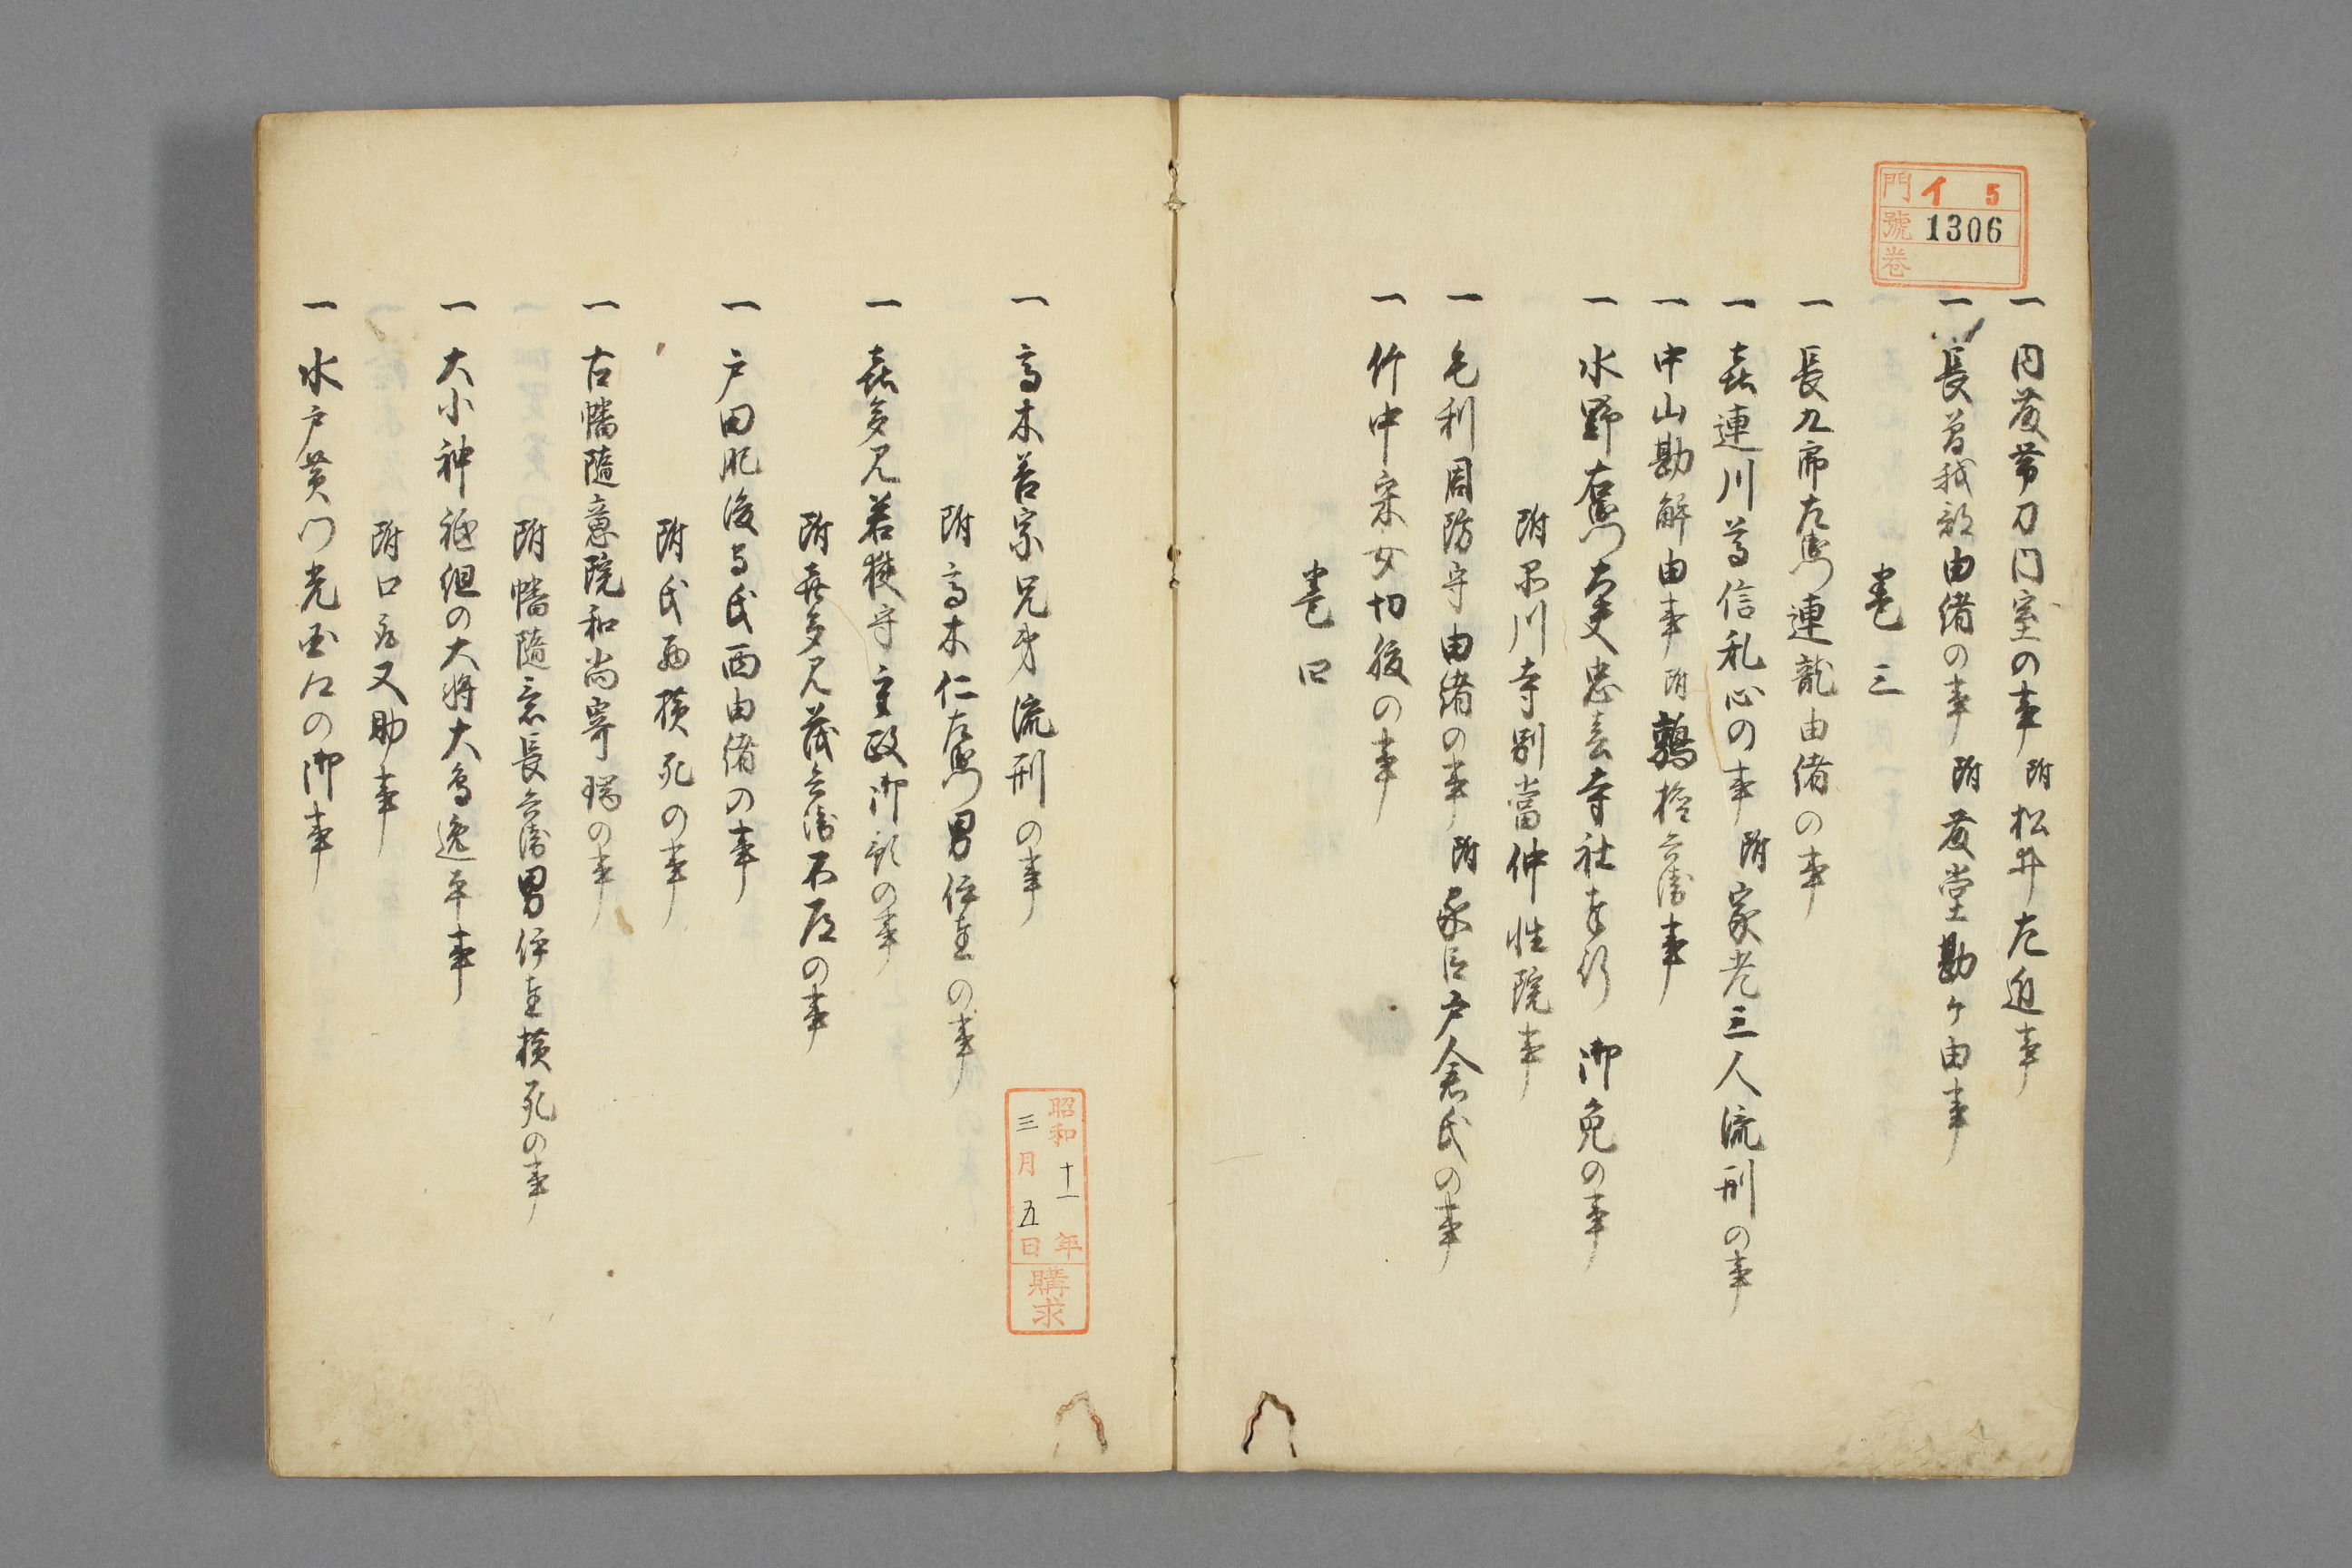 門 イ 5
號 1306
卷
一 内藤帯刀門室の事 附松井左近事
一 長曽我部由緒の事 附藤堂勘ケ由事
巻三
一 長九郎左衛門連龍由緒の事
一 喜連川尊信乱心の事 附家老三人流刑の事
一 中山勘解由事 附鶉権兵衛事
一 水野右衛門大夫忠春寺社奉行 御免の事
附品川寺別當仲性院事
一 毛利周防守由緒の事 附家臣戸倉氏の事
一 竹中采女切腹の事
巻四
一 高木善宗兄弟流刑の事
附高木仁左衛門男伊星の事
一 喜多見若狭守重政御預の事
附喜多見茂兵衛不届の事
一 戸田肥後守氏西由緒の事
附氏西横死の事
一 古幡随意院和尚寄瑞の事
附幡随意長兵衛男伊達横死の事
一 大小神祇組の大将大鳥逸平事
附口店又助事
一 水戸黄門光圀公の御事
昭和十一年
三月五日
購求